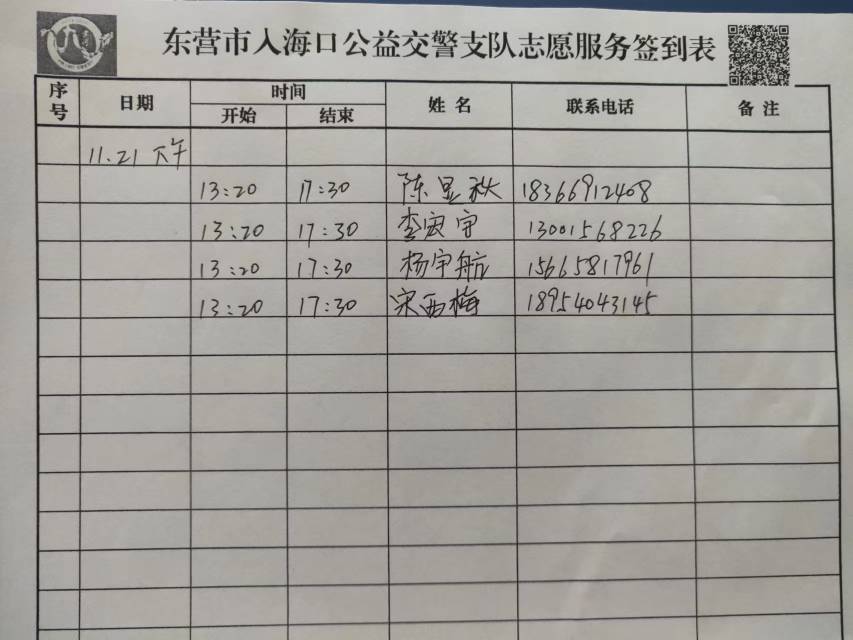 东营市入海口公益交警支队志愿服务签到表
序号 日期 时间 姓名 联系电话 备注
开始 结束
11.21 下午
13:20 17:30 陈显秋 18366912408
13:20 17:30 李宏宇 13001568226
13:20 17:30 杨宇航 15665817961
13:20 17:30 宋西梅 18954043145